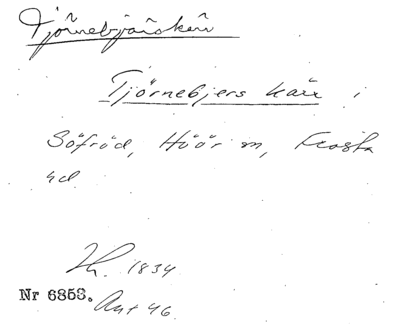 Tjörnebjärskärr
Tjörnebjers kärr i
Söfröd, Höör sn, Frosta
hd
Lk. 1834
Nr 6853. Ant 46.